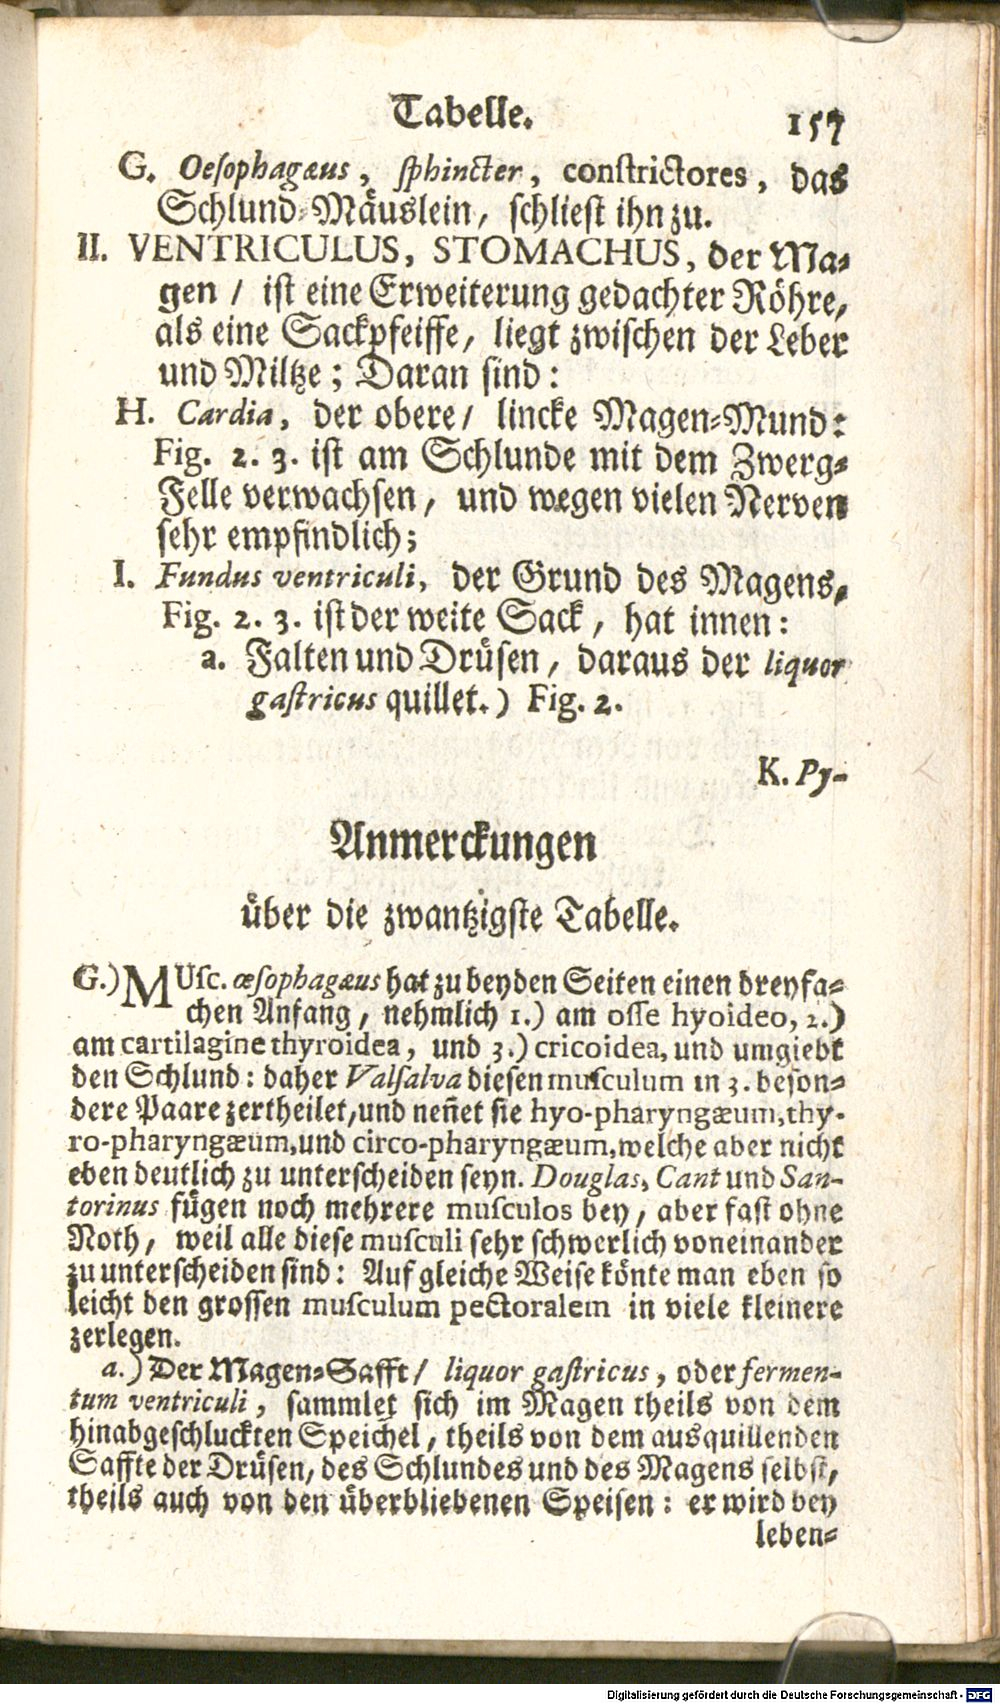 Tabelle. 157
G. Oesophagæus, sphincter, constrictores, das
Schlund-Mäuslein, schliest ihn zu.
II. VENTRICULUS, STOMACHUS, der Ma-
gen / ist eine Erweiterung gedachter Röhre,
als eine Sackpfeiffe, liegt zwischen der Leber
und Miltze; Daran sind:
H. Cardia, der obere / lincke Magen-Mund:
Fig. 2. 3. ist am Schlunde mit dem Zwerg-
Felle verwachsen, und wegen vielen Nerven
sehr empfindlich;
I. Fundus ventriculi, der Grund des Magens,
Fig. 2. 3. ist der weite Sack, hat innen:
a. Falten und Drüsen, daraus der liquor
gastricus quillet.) Fig. 2.
K. Py-
Anmerckungen
über die zwantzigste Tabelle.
G.) MUsc. œsophagæus hat zu beyden Seiten einen dreyfa-
chen Anfang, nehmlich 1.) am osse hyoideo, 2.)
am cartilagine thyroidea, und 3.) cricoidea, und umgiebt
den Schlund: daher Valsalva diesen musculum in 3. beson-
dere Paare zertheilet, und neñet sie hyo-pharyngæum, thy-
ro-pharyngæum, und circo-pharyngæum, welche aber nicht
eben deutlich zu unterscheiden seyn. Douglas, Cant und San-
torinus fügen noch mehrere musculos bey, aber fast ohne
Noth, weil alle diese musculi sehr schwerlich voneinander
zu unterscheiden sind: Auf gleiche Weise könte man eben so
leicht den grossen musculum pectoralem in viele kleinere
zerlegen.
a.) Der Magen-Safft / liquor gastricus, oder fermen-
tum ventriculi, sammlet sich im Magen theils von dem
hinabgeschluckten Speichel, theils von dem ausquillenden
Saffte der Drüsen, des Schlundes und des Magens selbst,
theils auch von den überbliebenen Speisen: er wird bey
leben-
Digitalisierung gefördert durch die Deutsche Forschungsgemeinschaft - DFG